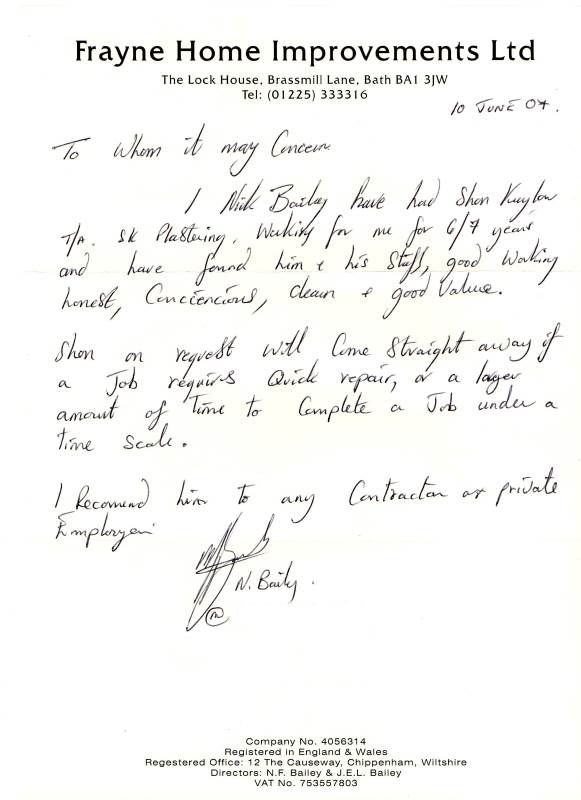 Frayne Home Improvements Ltd
The Lock House, Brassmill Lane, Bath BA1 3JW
Tel: (01225) 333316
10 JUNE 07.
To Whom it may Concern
I Nick Bailey have had Shon
T/A. SK Plastering. Working for me for 6/7 years
and have found him + his Staff, good Working
honest, Conciencious, clean + good Value.
Shon on request will Come Straight away if
a Job requires Quick repair, or a larger
amount of Time to Complete a Job under a
Time Scale.
I Recomend him to any Contractor or private
Employer
N. Baily.
Company No. 4056314
Registered in England & Wales
Regestered Office: 12 The Causeway, Chippenham, Wiltshire
Directors: N.F. Bailey & J.E.L. Bailey
VAT No. 753557803